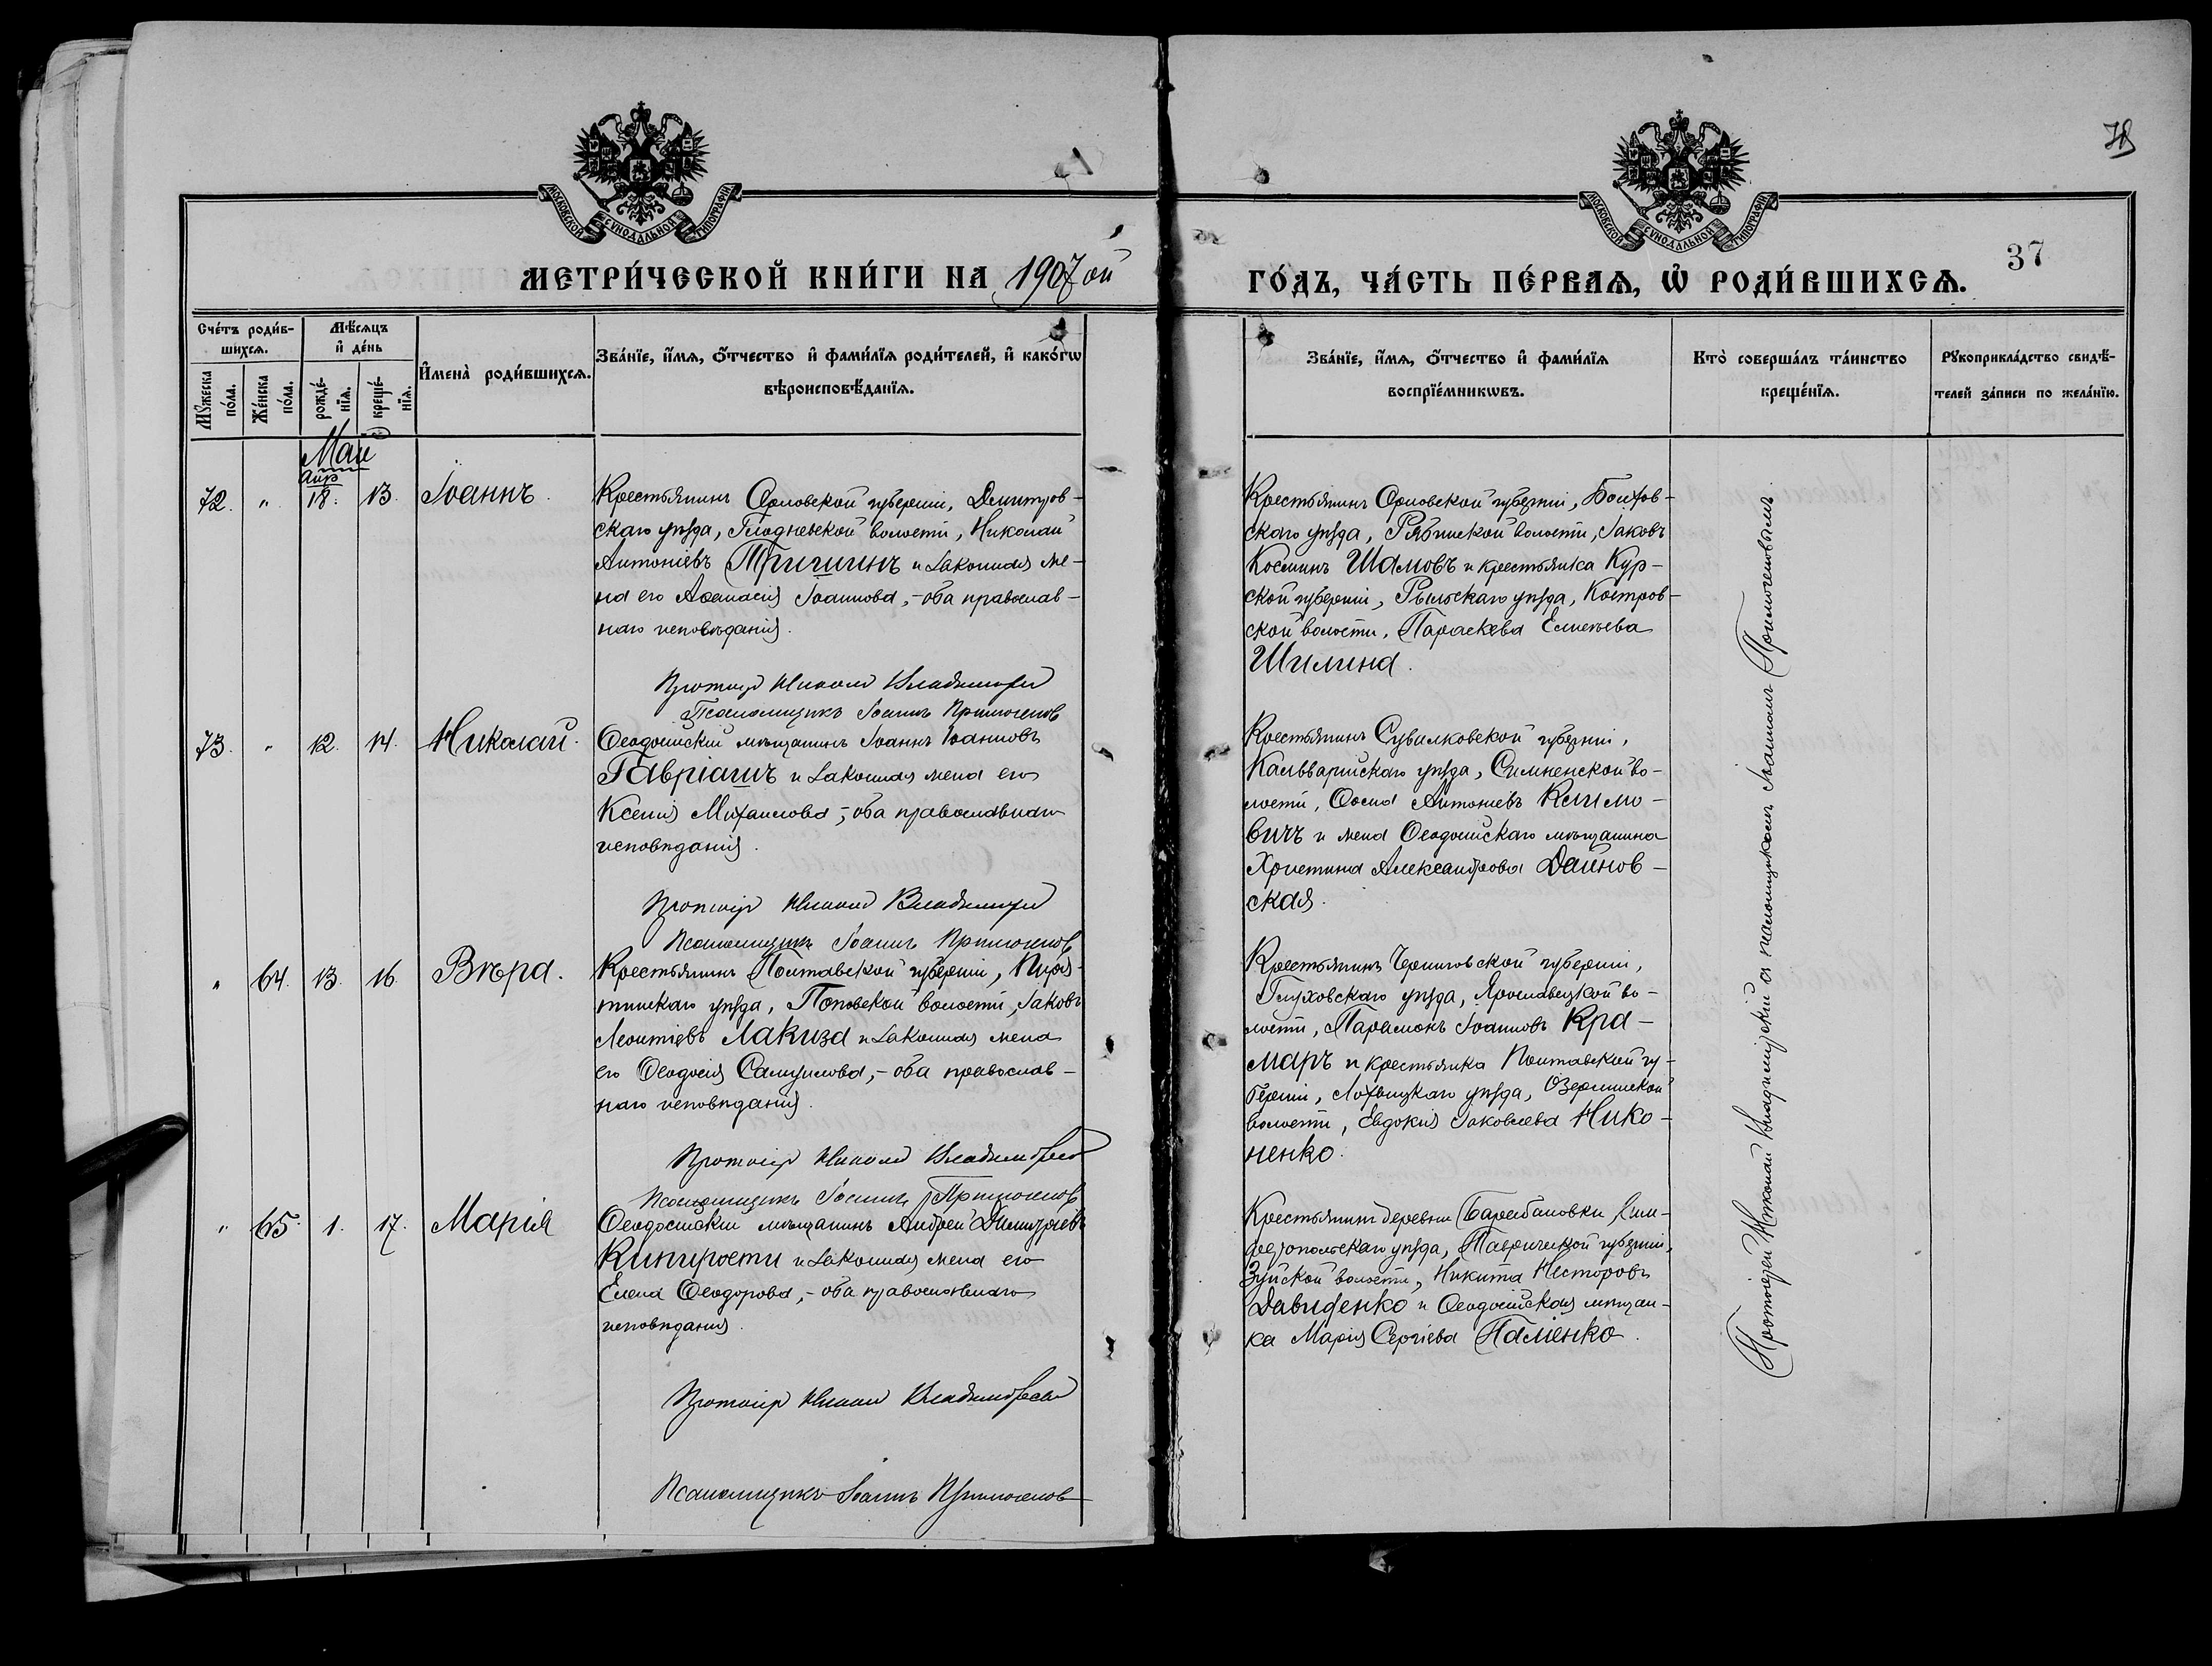 78
37
МОСКОВСКОЙ СѴНОДАЛЬНОЙ ТИПОГРАФІИ
МОСКОВСКОЙ СѴНОДАЛЬНОЙ ТИПОГРАФІИ
МЕТРИ́ЧЕСКОЙ КНИ́ГИ НА 1907ой
ГО́ДЪ, ЧА́СТЬ ПЕ́РВАѦ, Ѡ҆ РОДИ́ВШИХСѦ.
Сче́тъ роди́в-
шихсѧ.
Мѣ́сѧцъ
и҆ де́нь
Мꙋ́жеска
по́ла.
Же́нска
по́ла.
рожде́-
нїѧ.
креще́-
нїѧ.
И҆мена̀ роди́вшихсѧ.
Зва́нїе, и҆́мѧ, ѻ҆́тчество и҆ фами́лїѧ роди́телей, и҆ како́гѡ
вѣроисповѣ́данїѧ.
Зва́нїе, и҆́мѧ, ѻ҆́тчество и҆ фами́лїѧ
воспрїе́мникѡвъ.
Кто̀ соверша́лъ та́инство
креще́нїѧ.
Рꙋкоприкла́дство свидѣ́-
телей за́писи по жела́нїю.
Май
Апр
72. " 18. 13. Іоаннъ.
Крестьянинъ Орловской губерніи, Дмитров-
скаго уѣзда, Глодневской волости, Николай
Антоніевъ Тришинъ и законная же-
на его Аѳанасія Іоаннова,- оба православ-
наго исповѣданія.
Протоіер Николай Владимірскій
Псаломщикъ Іоаннъ Примогенов
Крестьянинъ Орловской губерніи, Болхов-
скаго уѣзда, Рябинской волости, Іаковъ
Косминъ Шамовъ и крестьянка Кур-
ской губерніи, Рыльскаго уѣзда, Костров-
ской волости, Параскева Елисеева
Шилина.
73. " 12. 14. Николай.
Ѳеодосійскій мѣщанинъ Іоаннъ Іоанновъ
Гавріашъ и законная жена его
Ксенія Михаилова,- оба православнаго
исповѣданія.
Протоіер Николай Владимірскій
Псаломщикъ Іоаннъ Примогенов
Крестьянинъ Сувалковской губерніи,
Кальварійскаго уѣзда, Симненской во-
лости, Осипъ Антоніевъ Климо-
вичъ и жена Ѳеодосійскаго мѣщанина
Христина Александрова Дайнов-
ская.
" 64. 13. 16. Вѣра.
Крестьянинъ Полтавской губерніи, Пиря-
тинскаго уѣзда, Поповской волости, Іаковъ
Леонтіевъ Лакиза и законная жена
его Ѳеодосія Самуилова,- оба православ-
наго исповѣданія.
Протоіер Николай Владимірскій
Псаломщикъ Іоаннъ Примогенов
Крестьянинъ Черниговской губерніи,
Глуховскаго уѣзда, Ярославецкой во-
лости, Парамонъ Іоанновъ Кра-
маръ и крестьянка Полтавской гу-
берніи, Лохвицкаго уѣзда, Озерянской
волости, Евдокія Іаковлева Нико-
ненко.
" 65. 1. 17. Марія
Ѳеодосійскій мѣщанинъ Андрей Димитріевъ
Кипирости и законная жена его
Елена Ѳеодорова,- оба православнаго
исповѣданія.
Протоіер Николай Владимірскій
Псаломщикъ Іоаннъ Примогенов
Крестьянинъ деревни Барабановки, Сим-
феропольскаго уѣзда, Таврической губерніи,
Зуйской волости, Никита Несторовъ
Давиденко и Ѳеодосійская мѣщан-
ка Марія Сергіева Паліенко.
Протоіерей Николай Владимірскій съ псаломщикомъ Іоанномъ Примогеновымъ.